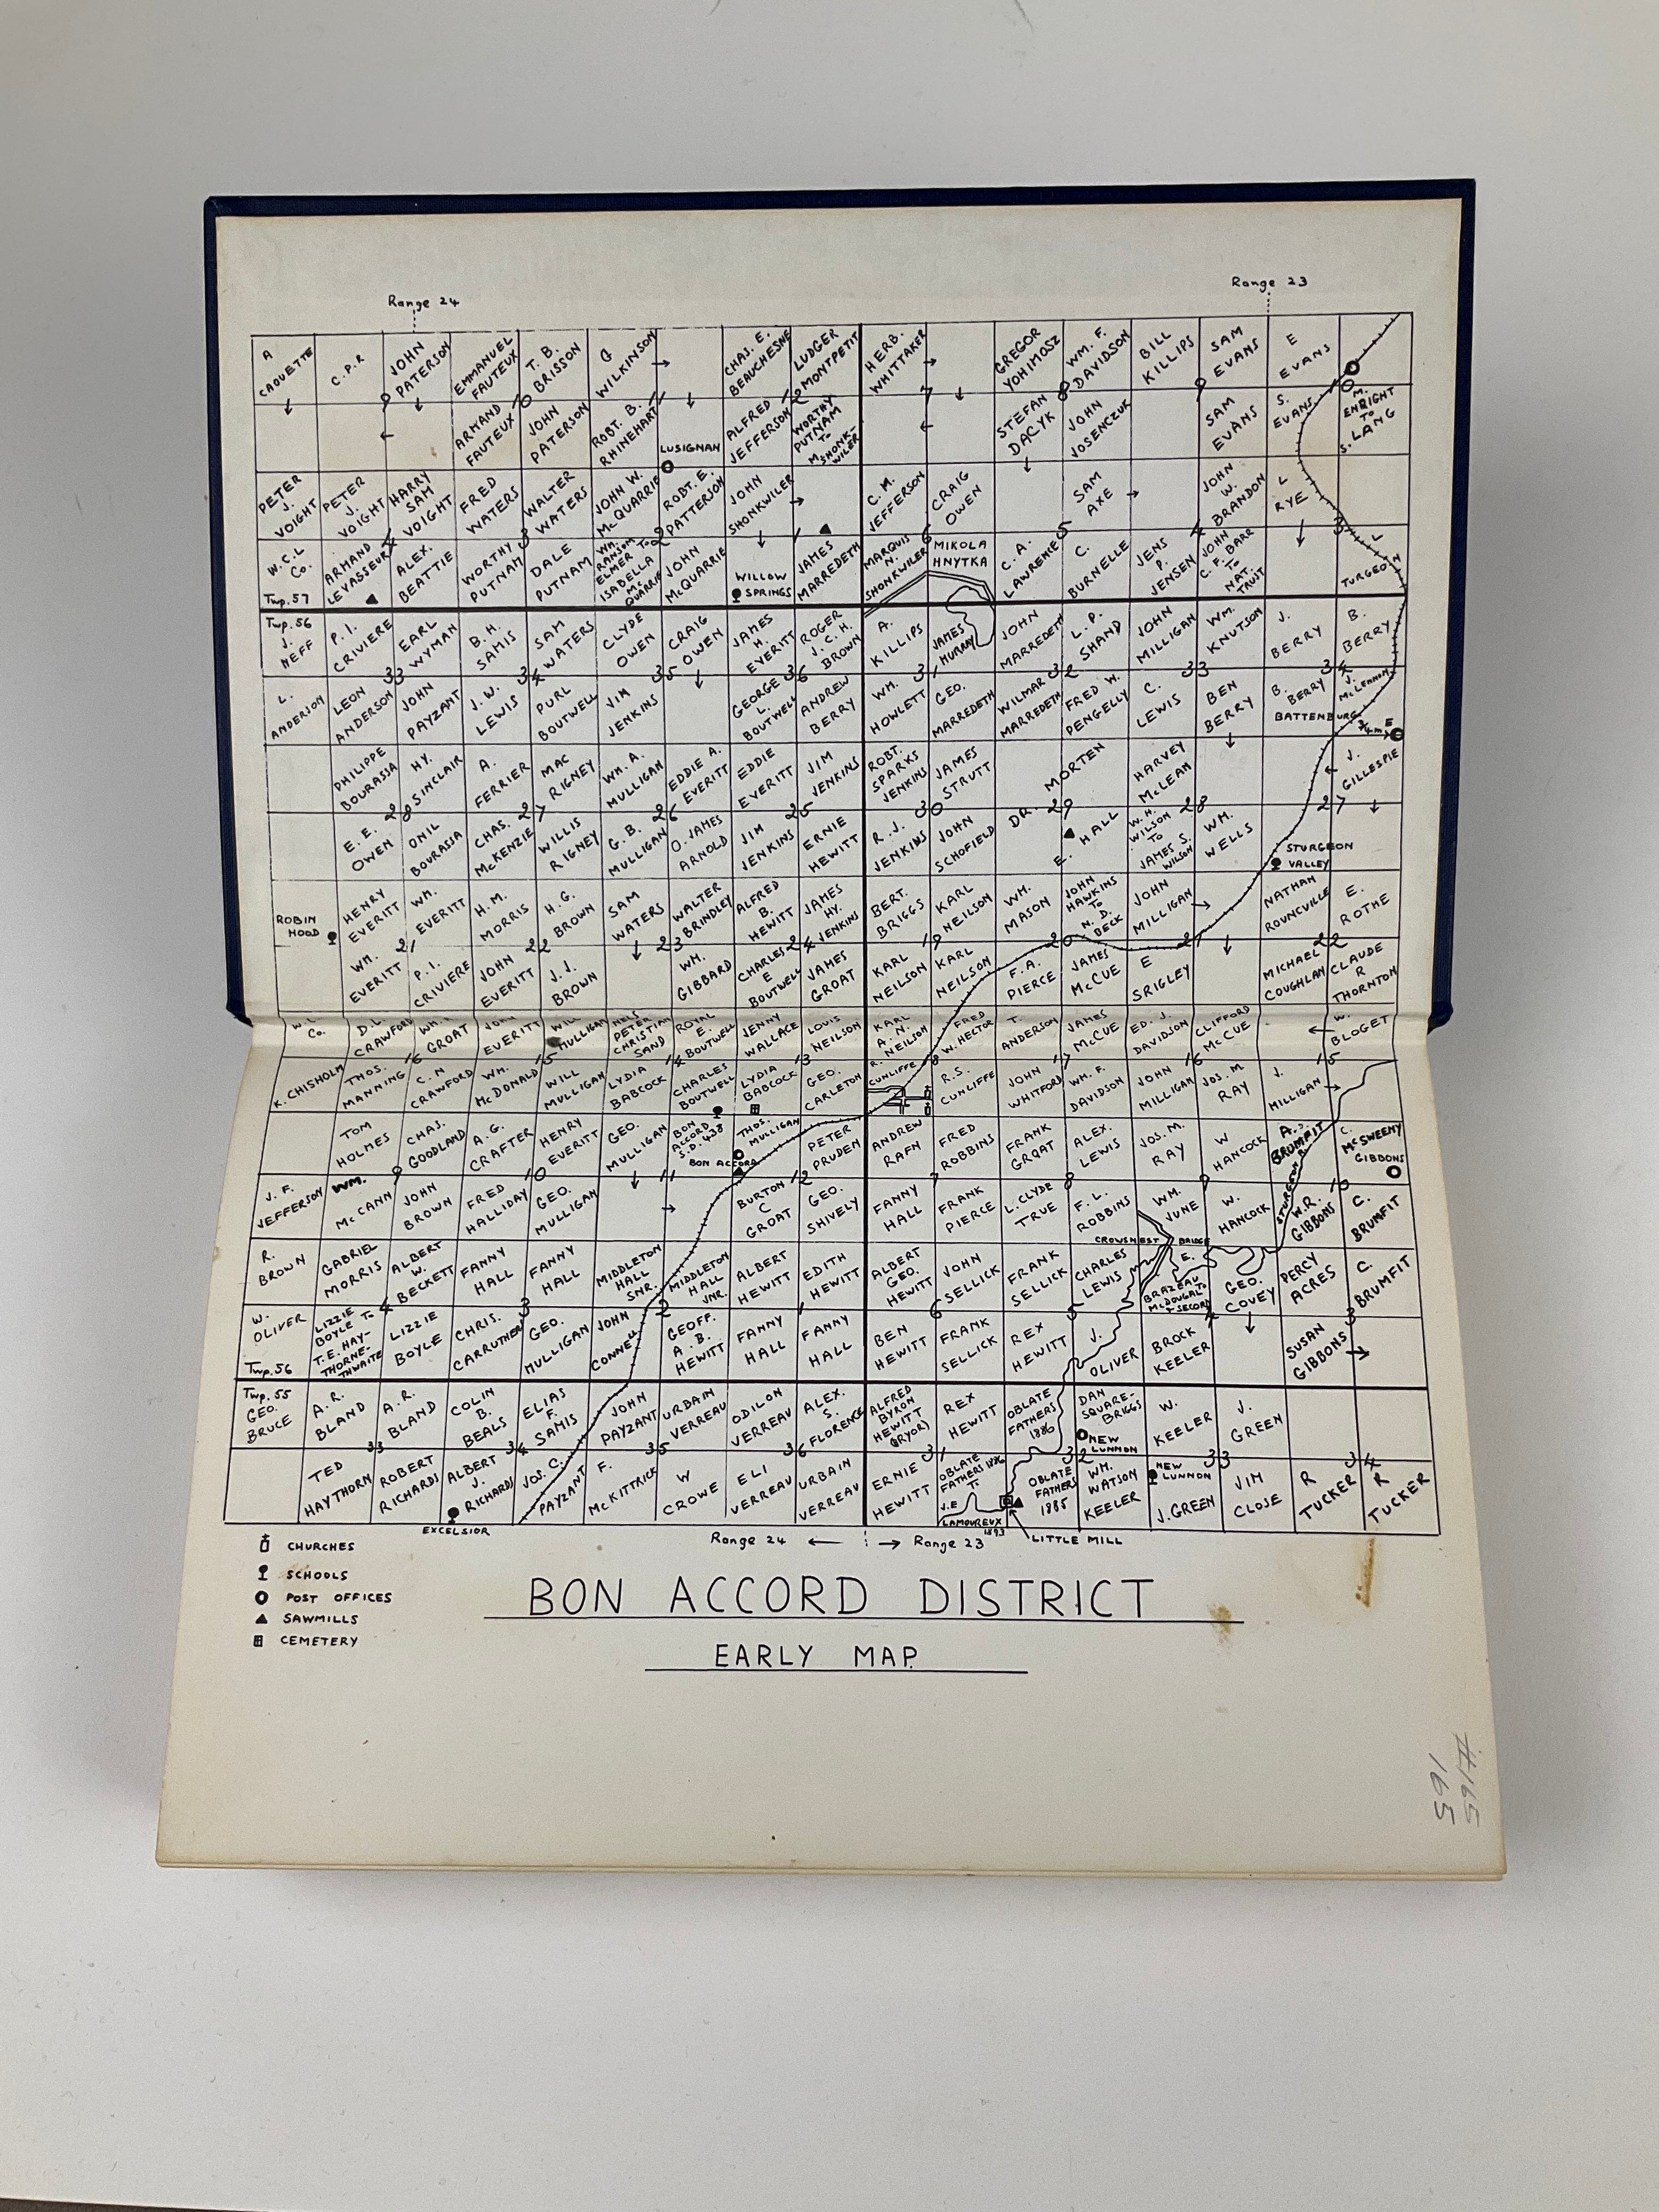 Range 24
Range 23
A CAOUETTE
C.P.R
JOHN PATERSON
EMMANUEL FAUTEUX
T. B. BRISSON
WILKINSON
CHAS. E. BEAUCHESNE
LUDGER MONTPETIT
HERB. WHITTAKER
GREGOR YOHIMOSZ
WM. F. DAVIDSON
BILL KILLIPS
SAM EVANS
E EVANS
9
10
11
12
7
8
9
10
ARMAND FAUTEUX
JOHN PATERSON
ROBT. B. RHINEHART
LUSIGNAN
ALFRED JEFFERSON
WORTHY PUTNAM TO M. SHONK-WILER
STEFAN DACYK
JOHN JOSENCZUK
SAM EVANS
S. EVANS
M. ENRIGHT TO S. LANG
PETER J. VOIGHT
PETER J. VOIGHT
HARRY SAM VOIGHT
FRED WATERS
WALTER WATERS
JOHN W. McQUARRIE
ROBT. E. PATTERSON
JOHN SHONKWILER
C. M. JEFFERSON
CRAIG OWEN
SAM AXE
JOHN W. BRANDON
L RYE
4
3
2
1
6
5
4
3
W.C.L Co.
ARMAND LEVASSEUR
ALEX. BEATTIE
WORTHY PUTNAM
DALE PUTNAM
WM. RANSOM ELMER TO ISABELLA McQUARRIE
JOHN McQUARRIE
WILLOW SPRINGS
JAMES MARREDETH
MARQUIS N. SHONKWILER
MIKOLA HNYTKA
C. A. LAWRENCE
C. BURNELLE
JENS P. JENSEN
JOHN C. F. BARR TO NAT. TRUST
L TURGEON
Twp. 57
Twp. 56
J. NEFF
P. I. CRIVIERE
EARL WYMAN
B. H. SAMIS
SAM WATERS
CLYDE OWEN
CRAIG OWEN
JAMES H. EVERITT
ROGER J. C. H. BROWN
A. KILLIPS
JAMES MURRAY
JOHN MARREDETH
L. P. SHAND
JOHN MILLIGAN
WM. KNUTSON
J. BERRY
B. BERRY
33
34
35
36
31
32
33
34
L. ANDERSON
LEON ANDERSON
JOHN PAYZANT
J. W. LEWIS
PURL BOUTWELL
JIM JENKINS
GEORGE L. BOUTWELL
ANDREW BERRY
WM. HOWLETT
GEO. MARREDETH
WILMAR MARREDETH
FRED W. PENGELLY
C. LEWIS
BEN BERRY
B. BERRY
J. McLENNON
BATTENBURG
3/4 m. E
PHILIPPE BOURASSA
HY. SINCLAIR
A. FERRIER
MAC RIGNEY
WM. A. MULLIGAN
EDDIE A. EVERITT
EDDIE EVERITT
JIM JENKINS
ROBT. SPARKS JENKINS
JAMES STRUTT
DR. MORTEN
HARVEY McLEAN
J. GILLESPIE
28
27
26
25
30
29
28
27
E. E. OWEN
ONIL BOURASSA
CHAS. McKENZIE
WILLIS RIGNEY
G. B. MULLIGAN
O. JAMES ARNOLD
JIM JENKINS
ERNIE HEWITT
R. J. JENKINS
JOHN SCHOFIELD
E. HALL
W. H. WILSON TO JAMES S. WILSON
WM. WELLS
STURGEON VALLEY
ROBIN HOOD
HENRY EVERITT
WM. EVERITT
H. M. MORRIS
H. G. BROWN
SAM WATERS
WALTER BRINDLEY
ALFRED B. HEWITT
JAMES HY. JENKINS
BERT. BRIGGS
KARL NEILSON
WM. MASON
JOHN HAWKINS TO N. D. BECK
JOHN MILLIGAN
NATHAN ROUNCVILLE
E. ROTHE
21
22
23
24
19
20
21
22
WM. EVERITT
P. I. CRIVIERE
JOHN EVERITT
J. J. BROWN
WM. GIBBARD
CHARLES E BOUTWELL
JAMES GROAT
KARL NEILSON
KARL NEILSON
F. A. PIERCE
JAMES McCUE
E SRIGLEY
MICHAEL COUGHLAN
CLAUDE R THORNTON
W.L Co.
D. L. CRAWFORD
WM. GROAT
JOHN EVERITT
WILL MULLIGAN
NELS PETER CHRISTIAN SAND
ROYAL E. BOUTWELL
JENNY WALLACE
LOUIS NEILSON
KARL A. N. NEILSON
FRED W. HECTOR
T. ANDERSON
JAMES McCUE
ED. J. DAVIDSON
CLIFFORD McCUE
W. BLOGET
16
15
14
13
18
17
16
15
K. CHISHOLM
THOS. MANNING
C. N CRAWFORD
WM. McDONALD
WILL MULLIGAN
LYDIA BABCOCK
CHARLES BOUTWELL
LYDIA BABCOCK
GEO. CARLETON
R. CUNLIFFE
R. S. CUNLIFFE
JOHN WHITFORD
WM. F. DAVIDSON
JOHN MILLIGAN
JOS. M. RAY
J. MILLIGAN
TOM HOLMES
CHAS. GOODLAND
A. G. CRAFTER
HENRY EVERITT
GEO. MULLIGAN
BON ACCORD S.D. 438
THOS. MULLIGAN
BON ACCORD
PETER PRUDEN
ANDREW RAFN
FRED ROBBINS
FRANK GROAT
ALEX. LEWIS
JOS. M. RAY
W HANCOCK
A. J. BRUMFIT
C. McSWEENY
GIBBONS
STURGEON R.
9
10
11
12
7
8
9
10
J. F. JEFFERSON
WM. McCANN
JOHN BROWN
FRED HALLIDAY
GEO. MULLIGAN
BURTON C GROAT
GEO. SHIVELY
FANNY HALL
FRANK PIERCE
L. CLYDE TRUE
F. L. ROBBINS
WM. JUNE
W. HANCOCK
W. R. GIBBONS
C. BRUMFIT
CROWSNEST BRIDGE
R. BROWN
GABRIEL MORRIS
ALBERT W. BECKETT
FANNY HALL
FANNY HALL
MIDDLETON HALL SNR.
MIDDLETON HALL JNR.
ALBERT HEWITT
EDITH HEWITT
ALBERT GEO. HEWITT
JOHN SELLICK
FRANK SELLICK
CHARLES LEWIS
E. BRAZEAU McDOUGAL TO SECORD
GEO. COVEY
PERCY ACRES
C. BRUMFIT
4
3
2
1
6
5
4
3
W. OLIVER
LIZZIE BOYLE TO T. E. HAY-THORNE-THWAITE
LIZZIE BOYLE
CHRIS. CARRUTHERS
GEO. MULLIGAN
JOHN CONNELL
GEOFF. A. B. HEWITT
FANNY HALL
FANNY HALL
BEN HEWITT
FRANK SELLICK
REX HEWITT
J. OLIVER
BROCK KEELER
SUSAN GIBBONS
Twp. 56
Twp. 55
GEO. BRUCE
A. R. BLAND
A. R. BLAND
COLIN B. BEALS
ELIAS F. SAMIS
JOHN PAYZANT
URDAIN VERREAU
ODILON VERREAU
ALEX. S. FLORENCE
ALFRED BYRON HEWITT (PRYOR)
REX HEWITT
OBLATE FATHERS 1886
DAN SQUARE-BRIGGS
NEW LUNNON
W. KEELER
J. GREEN
33
34
35
36
31
32
33
34
TED HAYTHORN
ROBERT RICHARDS
ALBERT J. RICHARDS
JOS. C. PAYZANT
F. McKITTRICK
W CROWE
ELI VERREAU
URBAIN VERREAU
ERNIE HEWITT
OBLATE FATHERS 1886 TO J.E LAMOUREUX 1893
OBLATE FATHERS 1885
WM. WATSON KEELER
NEW LUNNON
J. GREEN
JIM CLOSE
R TUCKER
R TUCKER
EXCELSIOR
Range 24
Range 23
LITTLE MILL
CHURCHES
SCHOOLS
POST OFFICES
SAWMILLS
CEMETERY
BON ACCORD DISTRICT
EARLY MAP.
#165
165